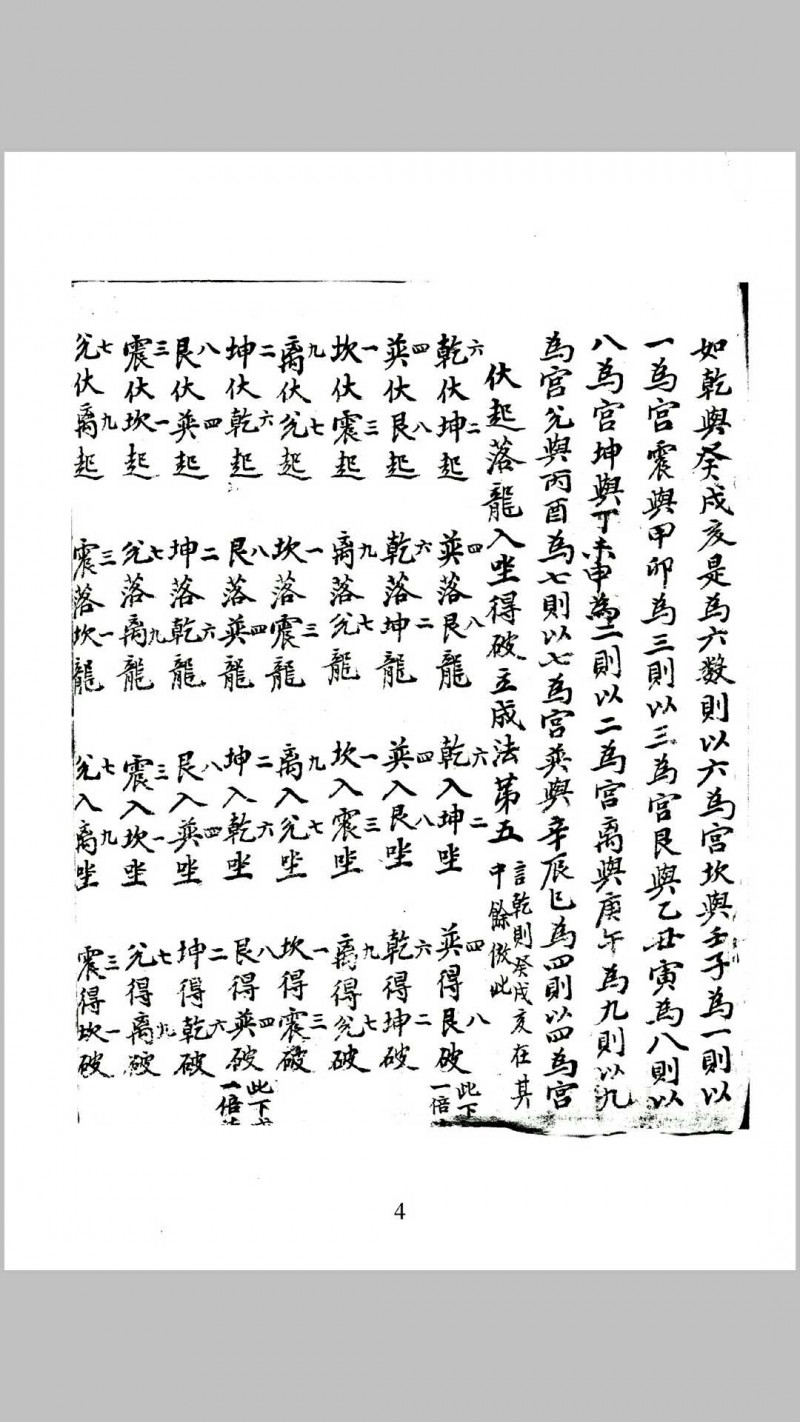 如乾與癸戌亥是為六数則以六為宮坎與壬子為一則以
一為宮震與甲卯為三則以三為宮艮與乙丑寅為八則以
八為宮坤與丁未申為二則以二為宮离與庚午為九則以九
為宮兊與丙酉為七則以七為宮巽與辛辰巳為四則以四為宮
伏起落龍入坐得破立成法第五
言乾則癸戌亥在其
中餘倣此
乾六伏坤二起 巽四落艮八龍 乾六入坤二坐 巽四得艮八破 此下
一倍
巽四伏艮八起 乾六落坤二龍 巽四入艮八坐 乾六得坤二破
坎一伏震三起 离九落兊七龍 坎一入震三坐 离九得兊七破
离九伏兊七起 坎一落震三龍 离九入兊七坐 坎一得震三破
坤二伏乾六起 艮八落巽四龍 坤二入乾六坐 艮八得巽四破 此下
一倍
艮八伏巽四起 坤二落乾六龍 艮八入巽四坐 坤二得乾六破
震三伏坎一起 兊七落离九龍 震三入坎一坐 兊七得离九破
兊七伏离九起 震三落坎一龍 兊七入离九坐 震三得坎一破
4